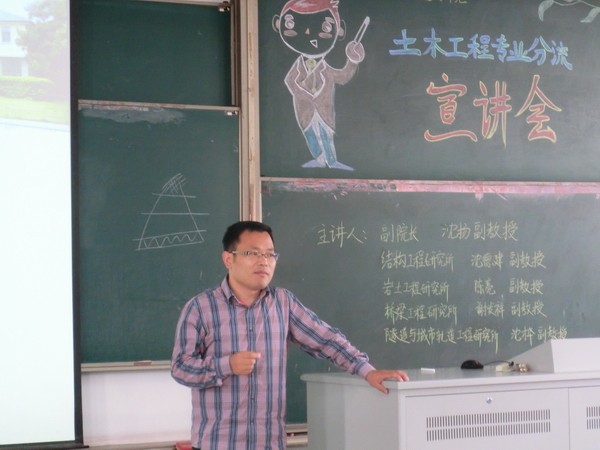 土木工程专业分流
宣讲会
主讲人： 副院长 沈扬 副教授
结构工程研究所 沈 副教授
岩土工程研究所 陈亮 副教授
桥梁工程研究所 谢发祥 副教授
隧道与城市轨道工程研究所 沈 副教授